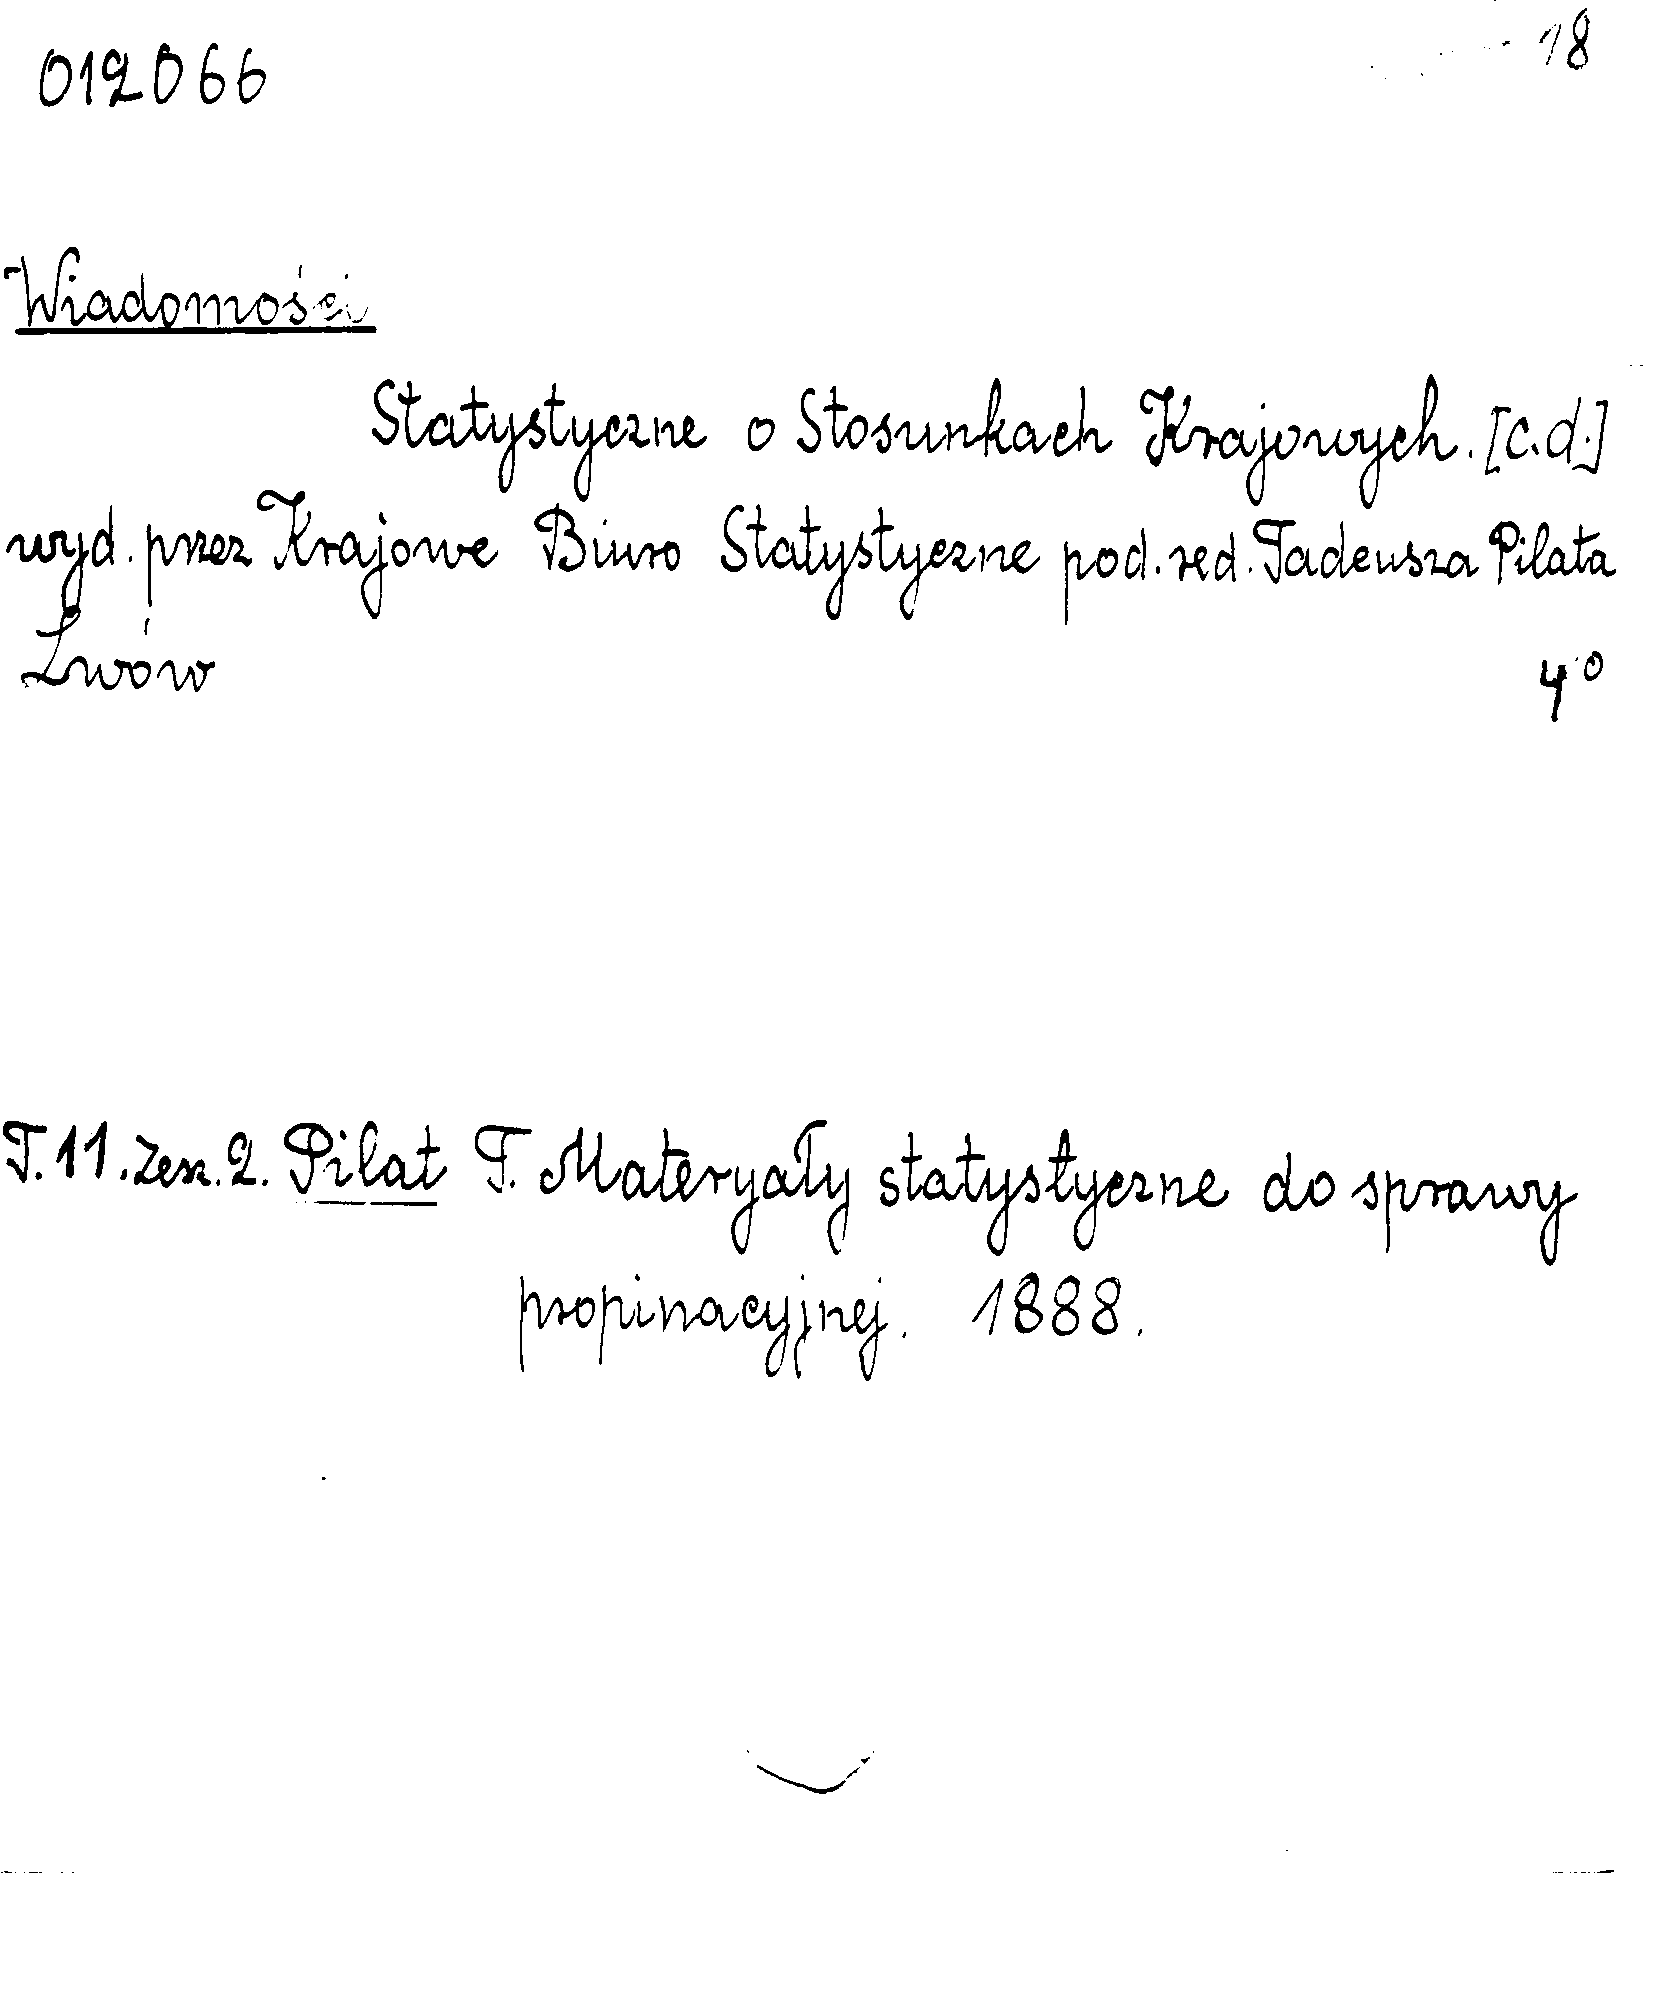 012066
18
Wiadomości
Statystyczne o Stosunkach Krajowych. [c.d.]
wyd. przez Krajowe Biuro Statystyczne pod. red. Tadeusza Pilata
Lwów 4°
T. 11. Zesz. 2. Pilat T. Materyały statystyczne do sprawy
propinacyjnej. 1888.